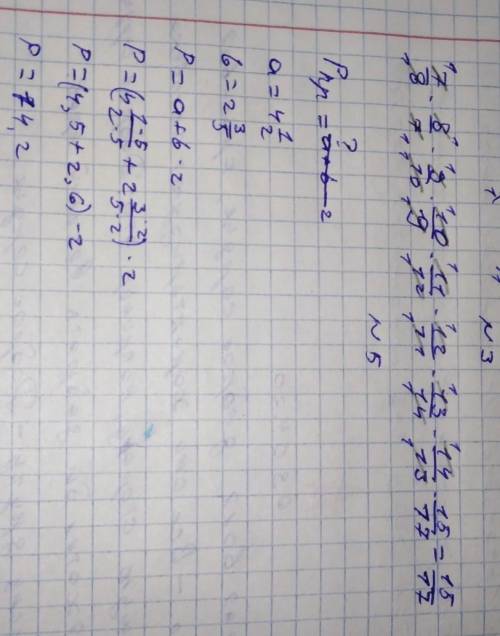 N3
7/8 · 8/7 · 9/10 · 10/9 · 11/12 · 12/11 · 13/14 · 14/13 · 15/17 = 15/17
N5
Pпр = ?
a = 4 1/2
b = 2 3/5
P = a + b · 2
P = (4 1·5/2·5 + 2 3·2/5·2) · 2
P = (4,5 + 2,6) · 2
P = 14,2